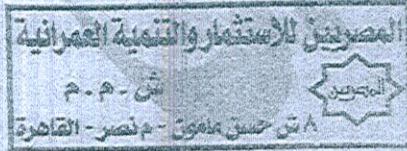 المصريين للاستثمار والتنمية العمرانية
ش.م.م
المصريين
٨ ش حسن مأمون - م نصر - القاهرة